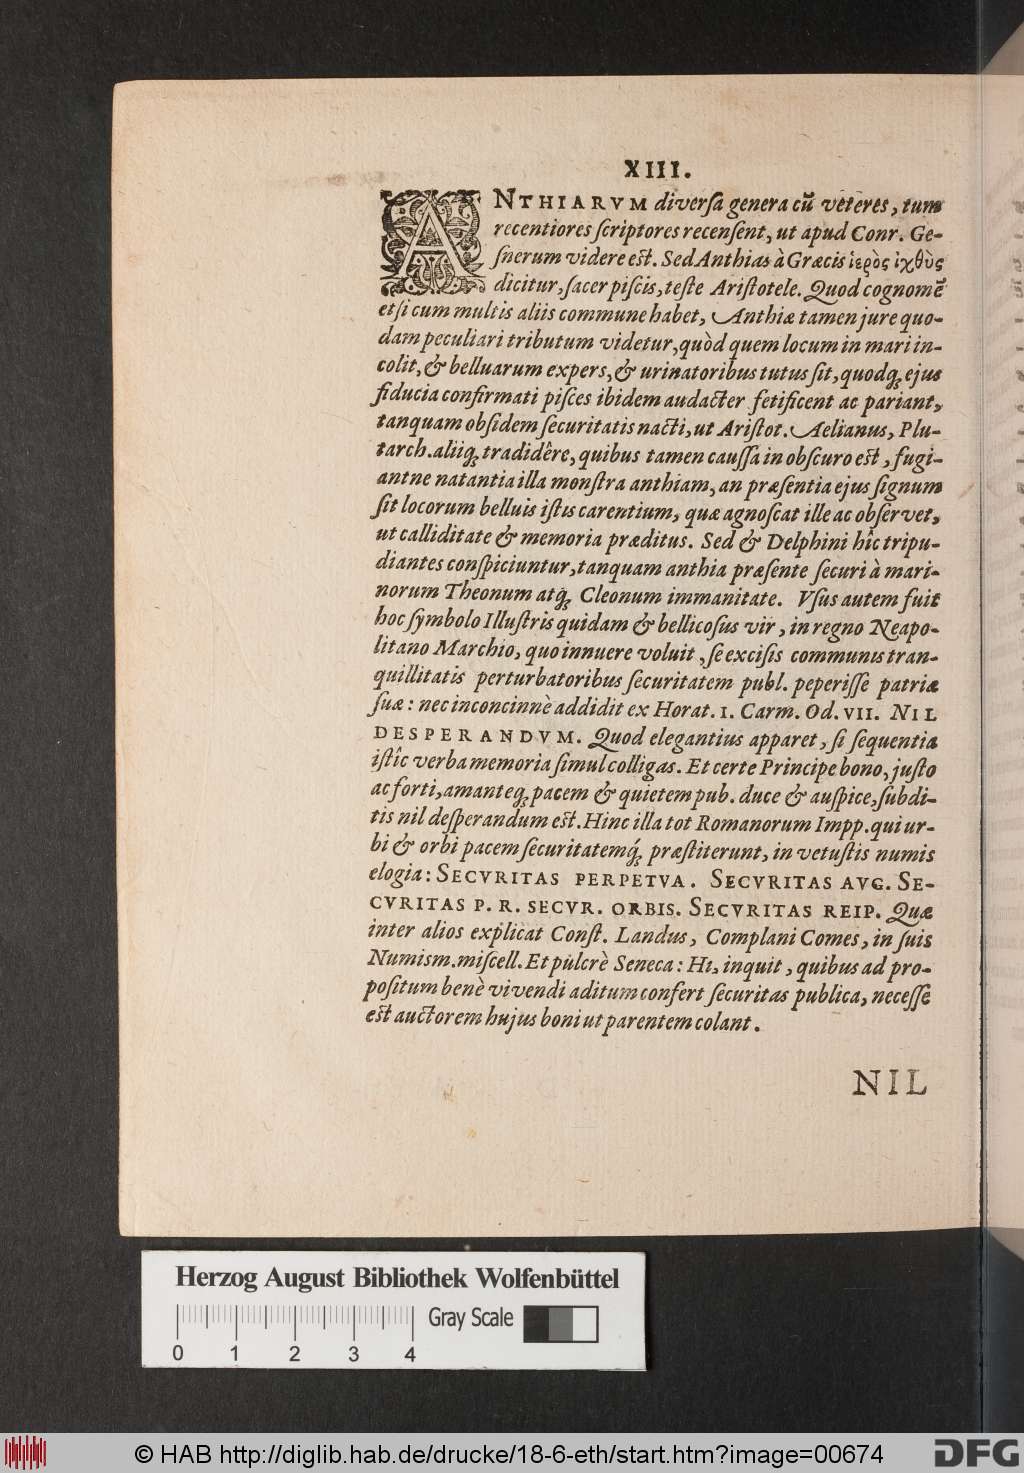 XIII.
ANTHIARVM diversa genera cũ veteres, tum
recentiores scriptores recensent, ut apud Conr. Ge-
snerum videre est. Sed Anthias à Græcis ἱερὸς ἰχθὺς
dicitur, sacer piscis, teste Aristotele. Quod cognomẽ
etsi cum multis aliis commune habet, Anthiæ tamen jure quo-
dam peculiari tributum videtur, quòd quem locum in mari in-
colit, & belluarum expers, & urinatoribus tutus sit, quodq; ejus
fiducia confirmati pisces ibidem audacter fetificent ac pariant,
tanquam obsidem securitatis nacti, ut Aristot. Aelianus, Plu-
tarch. aliiq; tradidêre, quibus tamen caussa in obscuro est, fugi-
antne natantia illa monstra anthiam, an præsentia ejus signum
sit locorum belluis istis carentium, quæ agnoscat ille ac observet,
ut calliditate & memoria præditus. Sed & Delphini hîc tripu-
diantes conspiciuntur, tanquam anthia præsente securi à mari-
norum Theonum atq; Cleonum immanitate. Vsus autem fuit
hoc symbolo Illustris quidam & bellicosus vir, in regno Neapo-
litano Marchio, quo innuere voluit, se excisis communis tran-
quillitatis perturbatoribus securitatem publ. peperisse patriæ
suæ: nec inconcinnè addidit ex Horat. I. Carm. Od. VII. NIL
DESPERANDVM. Quod elegantius apparet, si sequentia
istîc verba memoria simul colligas. Et certe Principe bono, justo
ac forti, amanteq; pacem & quietem pub. duce & auspice, subdi-
tis nil desperandum est. Hinc illa tot Romanorum Impp. qui ur-
bi & orbi pacem securitatemq́; præstiterunt, in vetustis numis
elogia: SECVRITAS PERPETVA. SECVRITAS AVG. SE-
CVRITAS P. R. SECVR. ORBIS. SECVRITAS REIP. Quæ
inter alios explicat Const. Landus, Complani Comes, in suis
Numism. miscell. Et pulcrè Seneca: Hi, inquit, quibus ad pro-
positum benè vivendi aditum confert securitas publica, necesse
est auctorem hujus boni ut parentem colant.
NIL
Herzog August Bibliothek Wolfenbüttel
Gray Scale
0 1 2 3 4
© HAB http://diglib.hab.de/drucke/18-6-eth/start.htm?image=00674
DFG